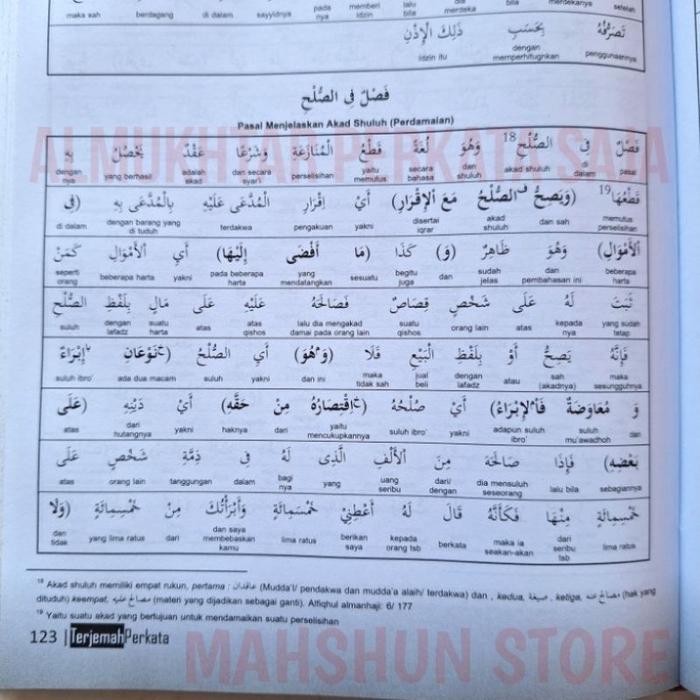 maka sah berdagang di dalam sayyidnya pada nya memberi idzin lalu bila merdeka bila merdekanya setelah
تَصَرُّفُهُ بِحَسَبِ ذَلِكَ الْإِذْنِ
penggunaannya dengan memperhitungkan idzin itu
فَصْلٌ فِي الصُّلْحِ
Pasal Menjelaskan Akad Shuluh (Perdamaian)
فَصْلٌ فِي الصُّلْحِ 18 وَهُوَ لُغَةً قَطْعُ الْمُنَازَعَةِ وَشَرْعًا عَقْدٌ يَحْصُلُ بِهِ
pasal dalam akad shuluh dan shuluh secara bahasa yaitu memutus perselisihan dan secara syar'i adalah akad yang berhasil dengan nya
قَطْعُهَا 19 (وَيَصِحُّ الصُّلْحُ مَعَ الْإِقْرَارِ) أَيْ إِقْرَارِ الْمُدَّعَى عَلَيْهِ بِالْمُدَّعَى بِهِ (فِي
memutus perselisihan dan sah akad shuluh disertai iqrar yakni pengakuan terdakwa dengan barang yang di tuduh di dalam
الْأَمْوَالِ) وَهُوَ ظَاهِرٌ (وَ) كَذَا (مَا أَفْضَى إِلَيْهَا) أَيِ الْأَمْوَالِ كَمَنْ
beberapa harta dan pembahasan ini sudah jelas dan begitu juga sesuatu yang mendatangkan pada beberapa harta yakni beberapa harta seperti orang
ثَبَتَ لَهُ عَلَى شَخْصٍ قِصَاصٌ فَصَالَحَهُ عَلَيْهِ عَلَى مَالٍ بِلَفْظِ الصُّلْحِ
yang sudah tetap kepada nya atas orang lain suatu qishos lalu dia mengakad damai pada orang lain atas qishos atas suatu harta dengan lafadz suluh
فَإِنَّهُ يَصِحُّ أَوْ بِلَفْظِ الْبَيْعِ فَلَا (وَهُوَ) أَيِ الصُّلْحُ (نَوْعَانِ إِبْرَاءٌ
maka sesungguhnya sah (akadnya) atau dengan lafadz jual beli maka tidak sah dan ini yakni suluh ada dua macam suluh ibro'
وَ مُعَاوَضَةٌ فَالْإِبْرَاءُ) أَيْ صُلْحُهُ (اقْتِصَارُهُ مِنْ حَقِّهِ) أَيْ دَيْنِهِ (عَلَى
dan suluh mu'awadhoh adapun suluh ibro' yakni suluh ibro' yaitu mencukupkannya dari haknya yakni dari hutangnya atas
بَعْضِهِ) فَإِذَا صَالَحَهُ مِنَ الْأَلْفِ الَّذِي لَهُ فِي ذِمَّةِ شَخْصٍ عَلَى
sebagiannya lalu bila dia mensuluh seseorang dari/ dengan uang seribu yang bagi nya dalam tanggungan orang lain atas
خَمْسِمِائَةٍ مِنْهَا فَكَأَنَّهُ قَالَ لَهُ أَعْطِنِيْ خَمْسَمِائَةٍ وَأَبْرَأْتُكَ مِنْ خَمْسِمِائَةٍ (وَلَا
lima ratus dari seribu tsb maka ia seakan-akan berkata kepada orang tsb berikan saya lima ratus dan saya membebaskan kamu dari yang lima ratus dan tidak
18 Akad shuluh memiliki empat rukun, pertama : عاقدان (Mudda'i/ pendakwa dan mudda'a alaih/ terdakwa) dan , kedua, صيغة , ketiga, مصالح عنه (hak yang
dituduh) keempat, مصالح عليه (materi yang dijadikan sebagai ganti). Alfiqhul almanhaji: 6/ 177
19 Yaitu suatu akad yang bertujuan untuk mendamaikan suatu perselisihan
123 | TerjemahPerkata
MAHSHUN STORE